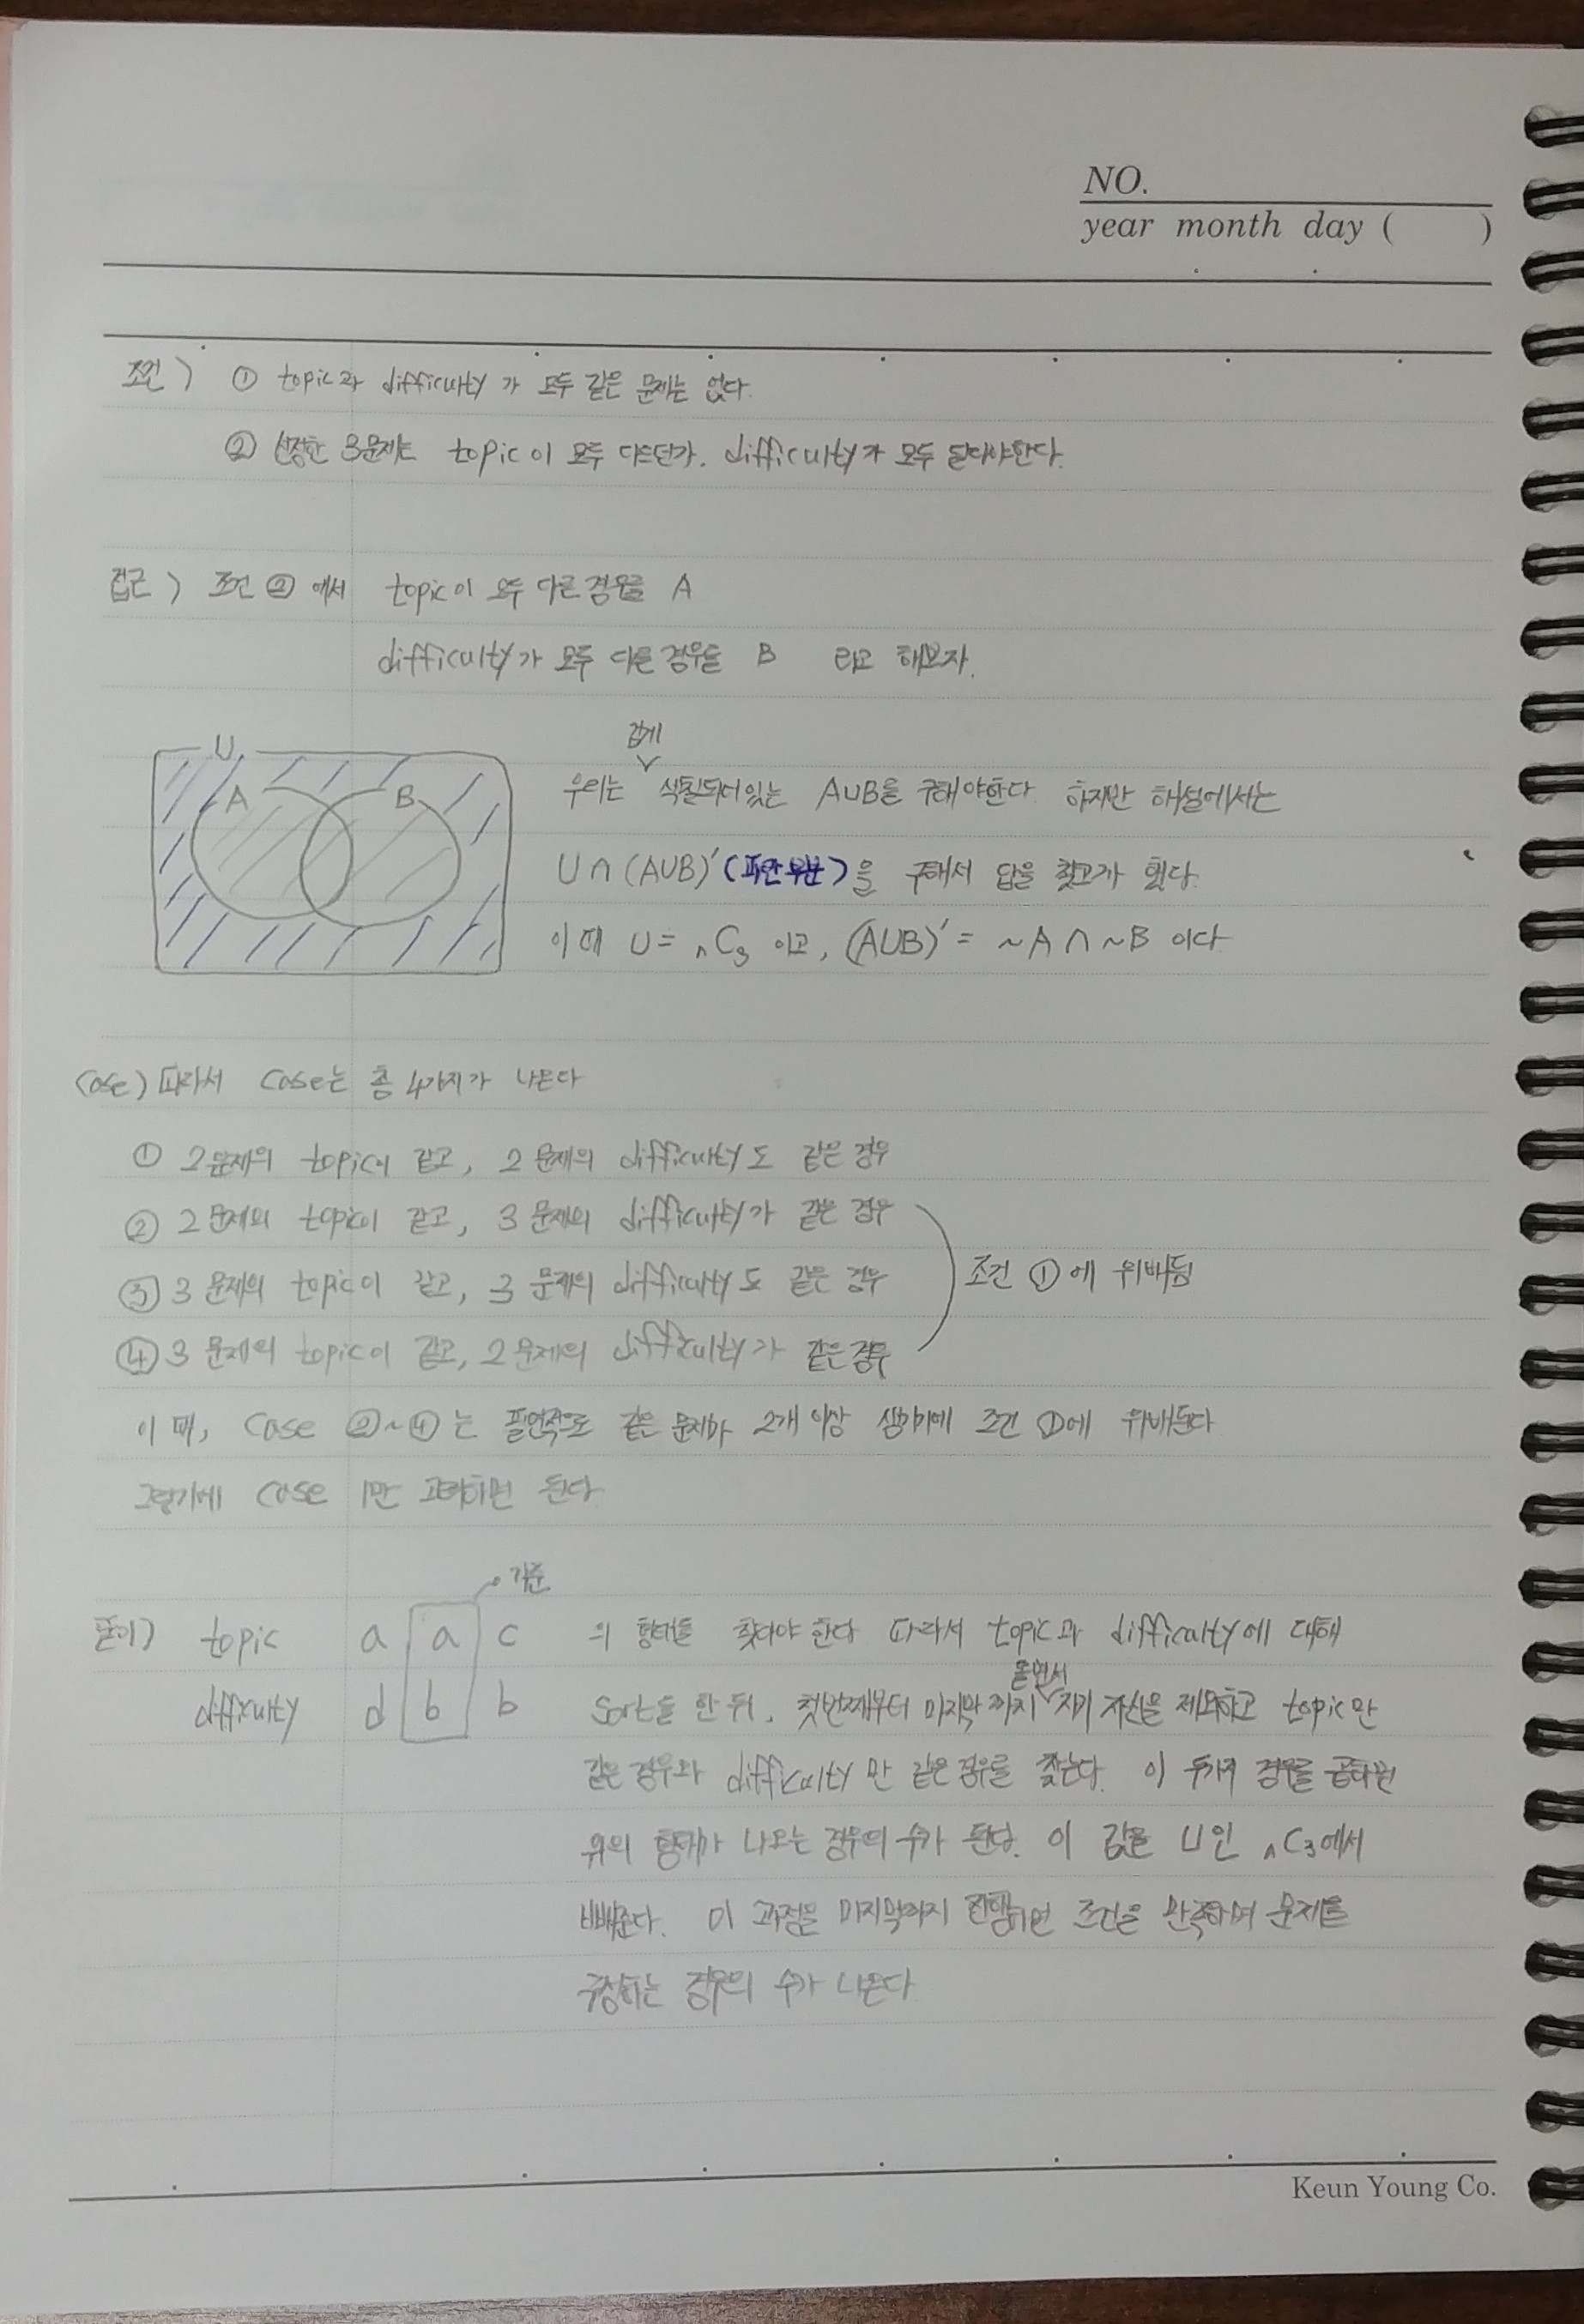 NO.
year month day ( )
조건) ① topic과 difficulty가 모두 같은 문제는 없다.
② 선정한 3문제는 topic이 모두 다르던가, difficulty가 모두 달라야한다.
접근) 조건 ② 에서 topic이 모두 다른 경우를 A
difficulty가 모두 다른 경우를 B 라고 해보자.
U
A B
검게
우리는 색칠되어있는 A∪B를 구해야한다 하지만 해설에서는
U∩(A∪B)′(파란부분)을 구해서 답을 찾고가 했다.
이때 U = nC3 이고, (A∪B)′ = ~A ∩ ~B 이다
Case) 따라서 Case는 총 4가지가 나온다
① 2문제의 topic이 같고, 2문제의 difficulty도 같은 경우
② 2문제의 topic이 같고, 3문제의 difficulty가 같은 경우
③ 3문제의 topic이 같고, 3문제의 difficulty도 같은 경우
④ 3문제의 topic이 같고, 2문제의 difficulty가 같은경우
조건 ①에 위배됨
이때, Case ②~④는 필연적으로 같은 문제가 2개 이상 생기기에 조건 ①에 위배된다
그렇기에 Case 1만 고려하면 된다
기준
풀이) topic a a c 의 형태를 찾아야 한다 따라서 topic과 difficulty에 대해
돌면서
difficulty d b b Sort를 한 뒤, 첫번째부터 마지막까지 자기 자신을 제외하고 topic만
같은경우와 difficulty만 같은경우를 찾는다. 이 두가지 경우를 곱하면
위의 형태가 나오는 경우의 수가 된다. 이 값을 U인 nC3에서
빼준다. 이 과정을 마지막까지 진행하면 조건을 만족하며 문제를
구성하는 경우의 수가 나온다
Keun Young Co.